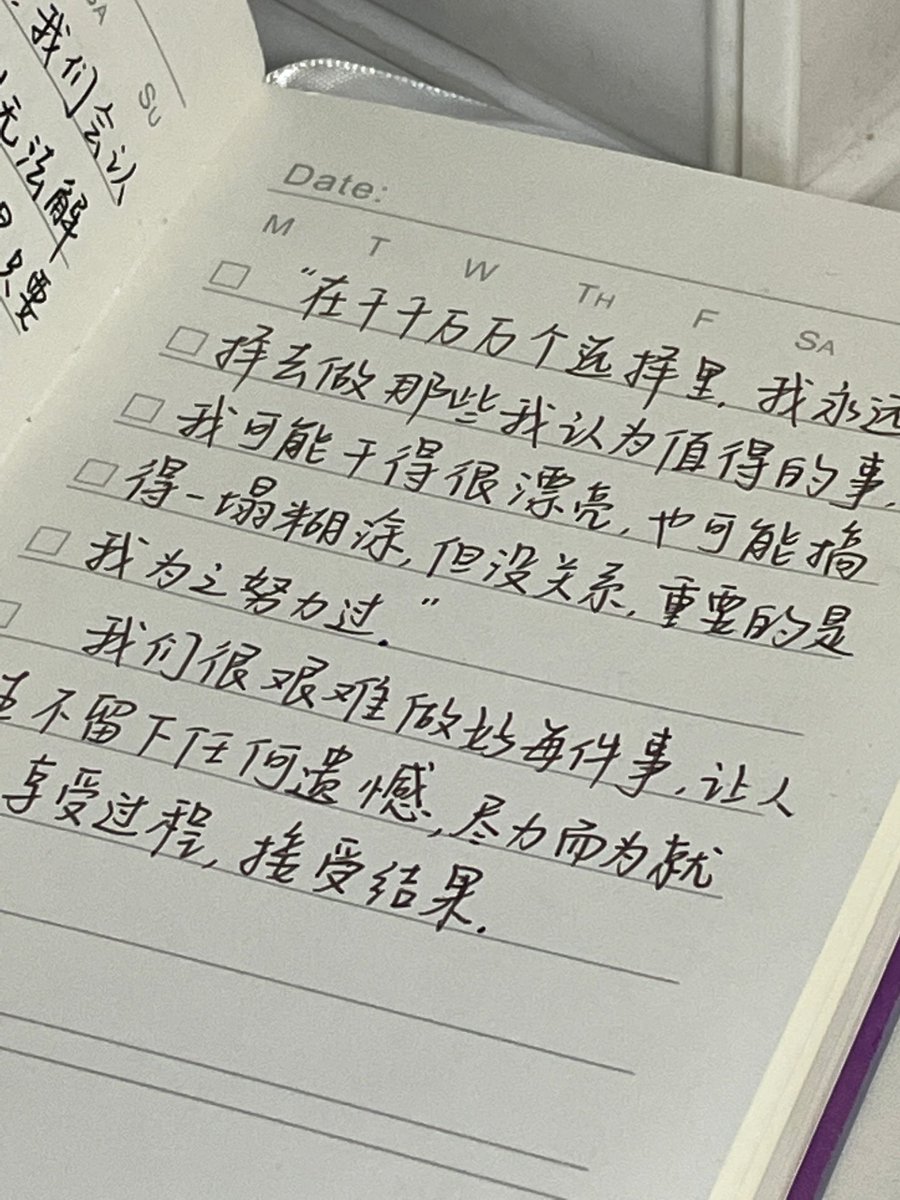 我们会认
无法解
只要
SA
SU
Date:
M T W TH F SA
“在千千万万个选择里,我永远
择去做那些我认为值得的事,
我可能干得很漂亮,也可能搞
得一塌糊涂,但没关系,重要的是
我为之努力过.”
我们很艰难做好每件事,让人
不留下任何遗憾,尽力而为就
享受过程,接受结果.